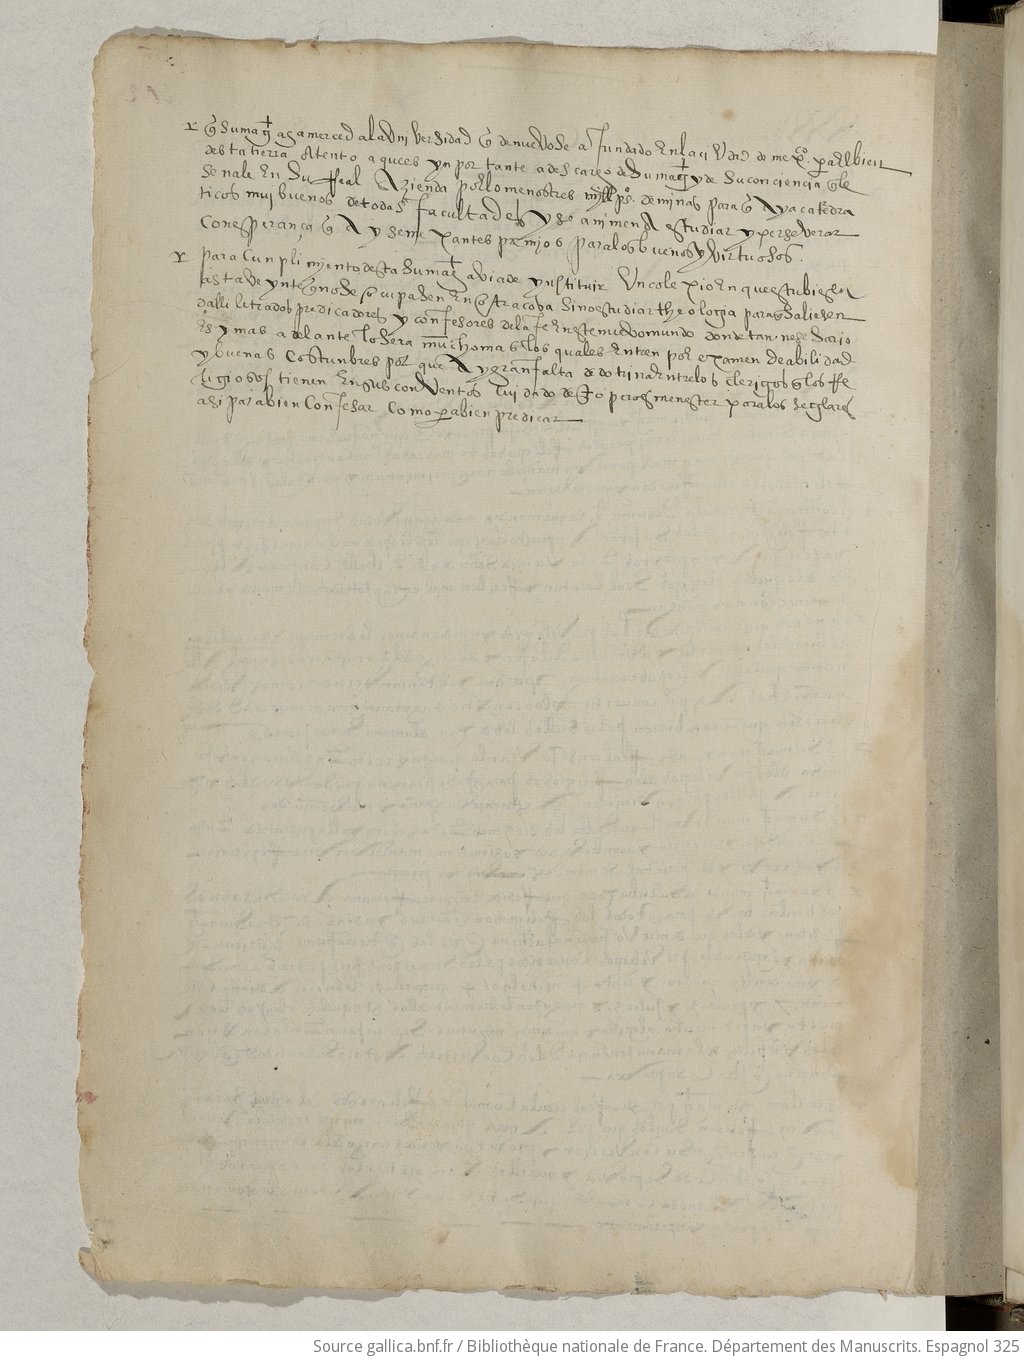 r q̃ su mag̃ aga merced a la Vniversidad q̃ de nuevo se a fundado en la ciudad de mexco para el bien
desta tierra Atento a que es ynportante a descargo de su mag̃ y de su conciencia q̃ le
señale en su Real Azienda por lo menos tres mjll ps. de minas para q̃ Aya catedra
ticos muj buenos de todas facultades y se animen a estudiar y perseverar
Con esperança q̃ A y semexantes premjos para los buenos y virtuosos.
r para Cunplimjento desta su mag̃ avia de ynstituir Un colexio en que estubiesen
asta Veynte q̃ no se ocupasen en otra cosa sino estudiar theologia para q̃ saliesen
d alli letrados predicadores y confesores de la fe en este nuevo mundo donde tan nesesario
es y mas adelante lo sera mucho mas los quales entren por examen de abilidad
y buenas Costunbres por que Ay gran falta de dotrina entre los clerigos q̃ los Re
ligiosos tienen en sus conVentos Cuidado desto pero es menester para los seglares
asi para bien Confesar Como para bien predicar
Source gallica.bnf.fr / Bibliothèque nationale de France. Département des Manuscrits. Espagnol 325